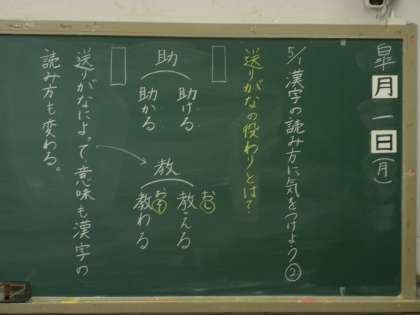 皐月一日(月)
5/1 漢字の読み方に気をつけよう②
送りがなの役わりとは？
助
助ける
助かる
教
教える
おし
教わる
おそ
送りがなによって、意味も漢字の
読み方も変わる。